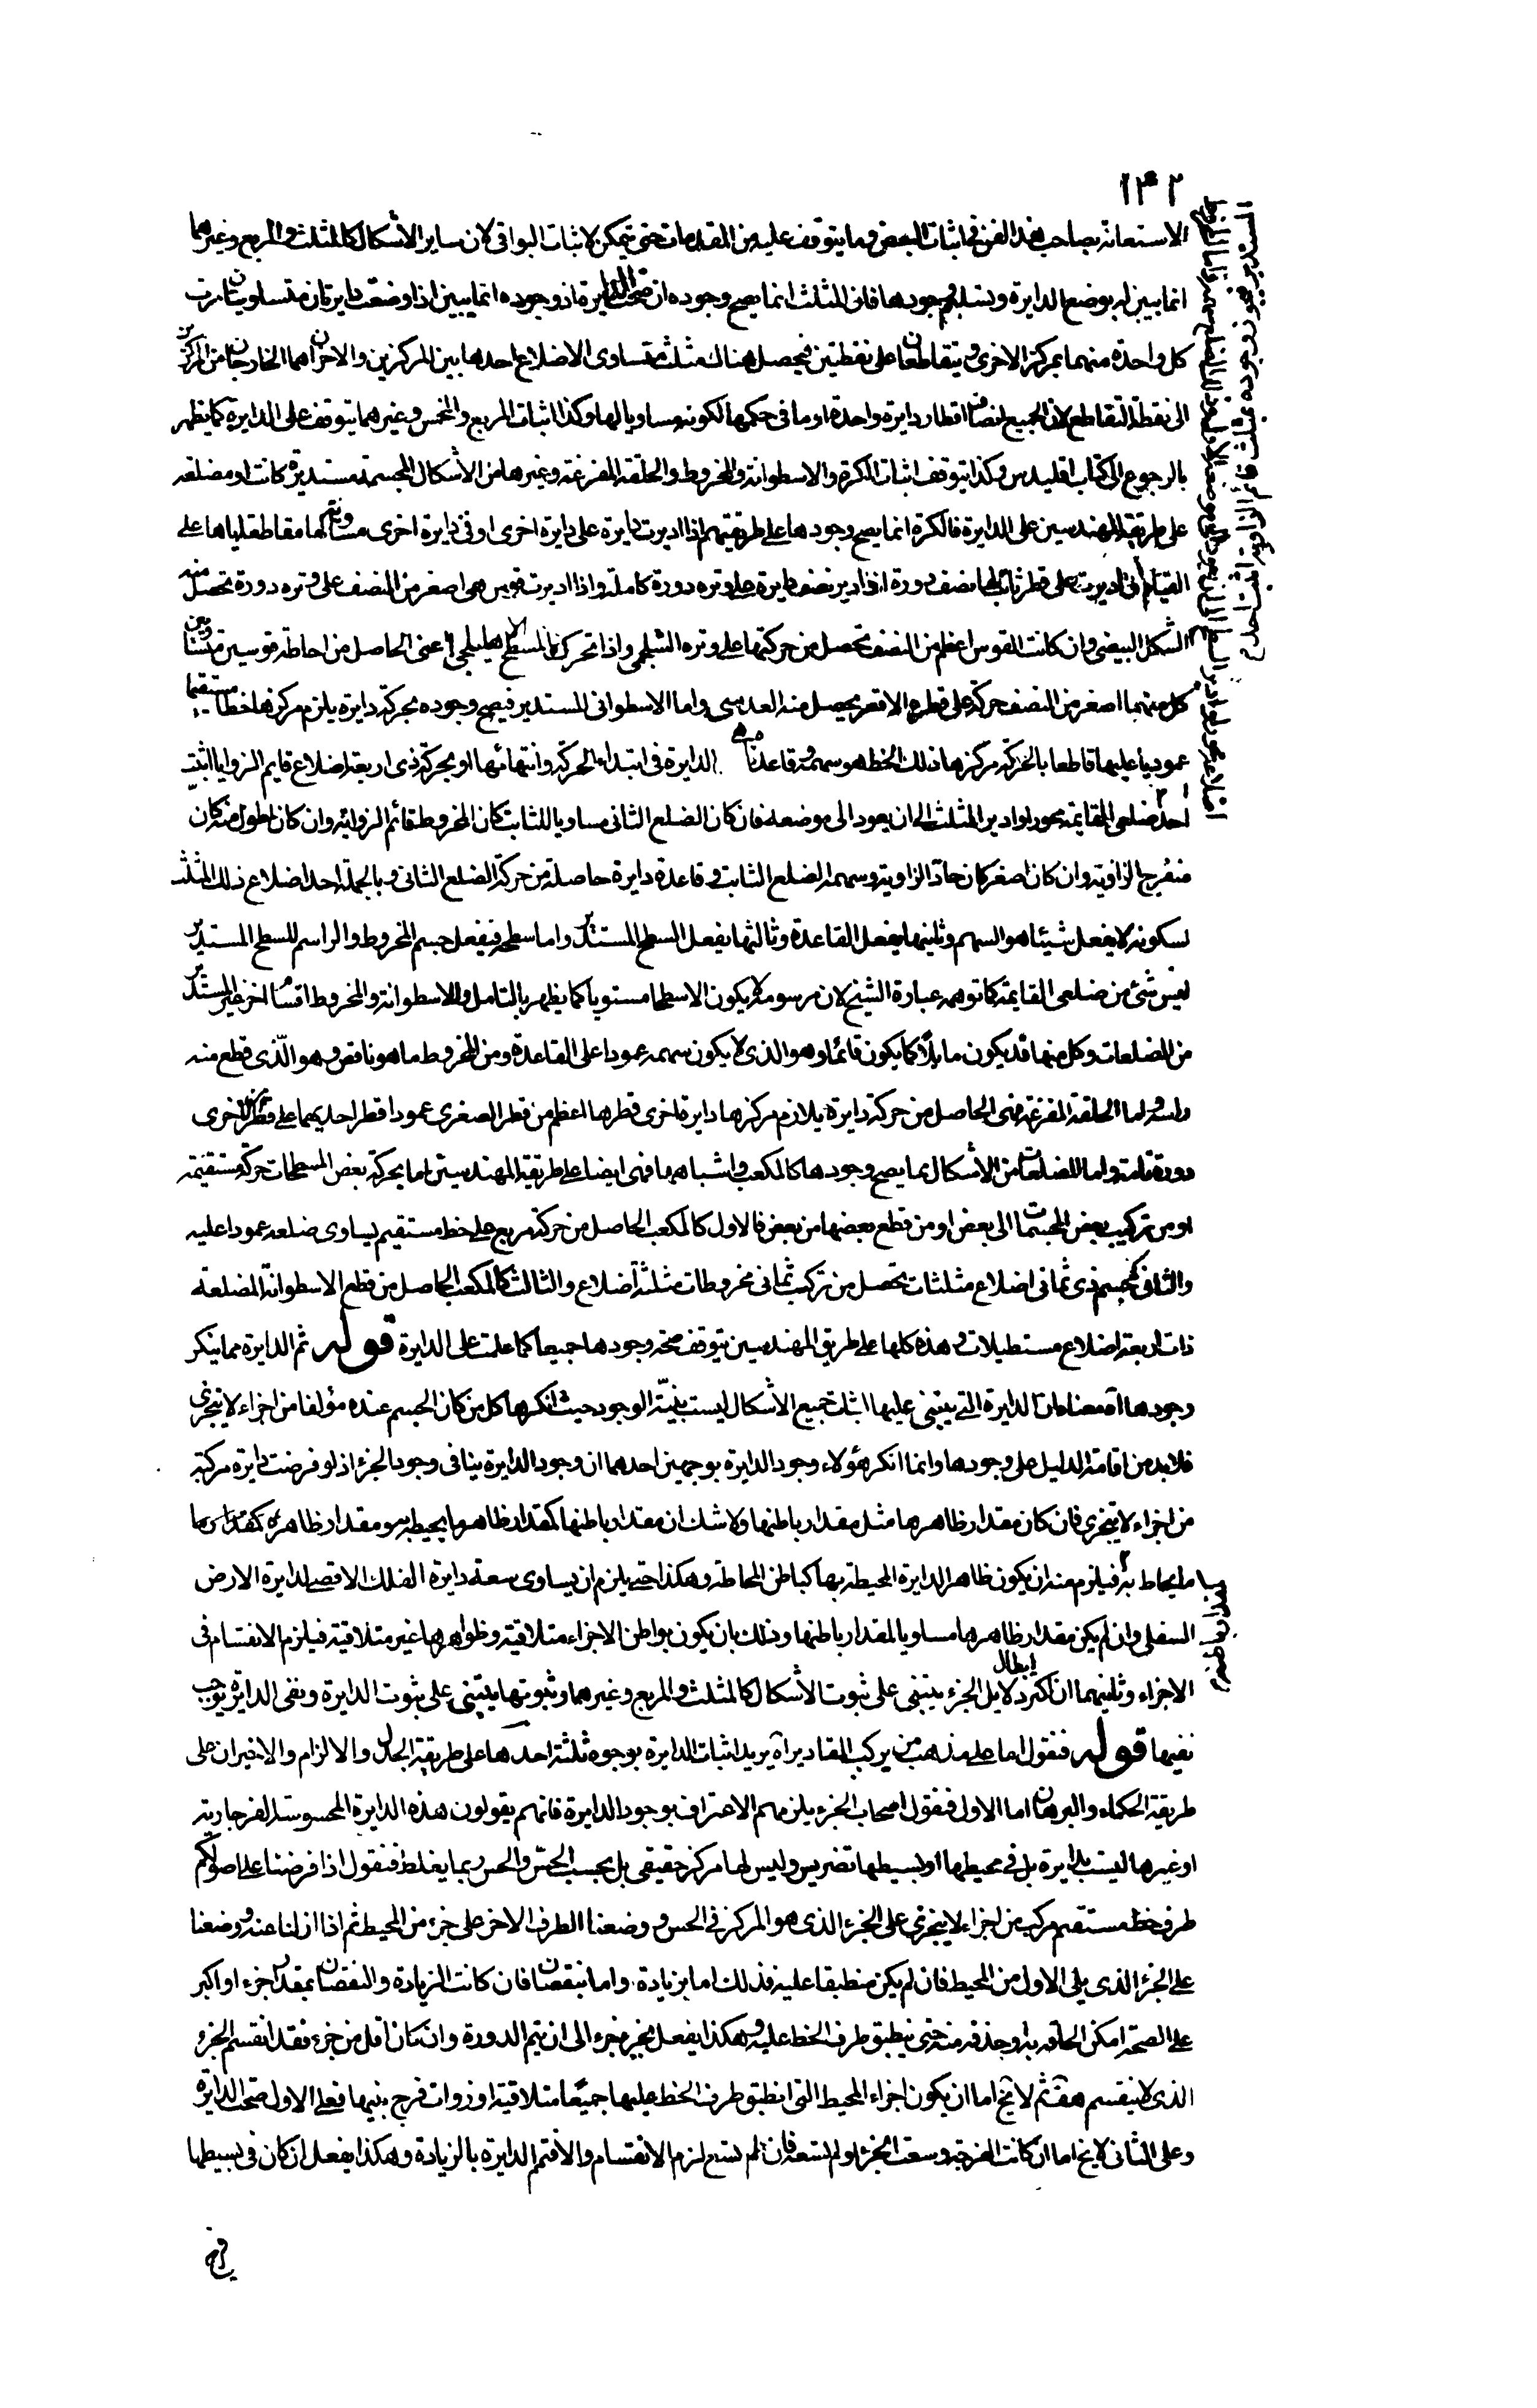 ١٤٢
الاستعانة بصاحب هذا الفن في اثبات البعض وما يتوقف عليه من المقدمات حتى تمكن لاثبات البواقي لان ساير الأشكال كالمثلث والمربع وغيرهما
انما يبين له بوضع الدايرة وتسليم وجودها فان المثلث انما يصح وجوده ان صحت الدايرة اذ وجوده انما يبين اذا وضعت دايرتان متساويتان مرت
كل واحدة منهما بمركز الاخرى وتتقاطعان على نقطتين فيحصل هناك مثلث متساوى الاضلاع احدها بين المركزين والاخران هما الخارجان من المركزين
الى نقطة التقاطع لان الجميع انصاف اقطار دايرة واحدة او ما في حكمها لكونه مساويا لها وكذا اثبات المربع والمخمس وغيرهما يتوقف على الدايرة كما يظهر
بالرجوع الى كتاب اقليدس وكذا يتوقف اثبات الكرة والاسطوانة والمخروط والحلقة المفرغة وغيرها من الأشكال المجسمة مستديرة كانت او مضلعه
على طريقة المهندسين على الدايرة فالكرة انما يصح وجودها على طريقتهم اذا اديرت دايرة على دايرة اخرى او في دايرة اخرى مساوية لها مقاطعة اياها على
القيام اديرت على قطر ثابت لها نصف دورة اذا ادير نصف دايرة على وتره دورة كاملة واذا اديرت قوس هي اصغر من النصف على وتره دورة تحصل منه
الشكل البيضى وان كانت القوس اعظم من النصف تحصل من حركتها على وتره الشلجمى واذا تحرك المسطح الاهليلجى اعنى الحاصل من احاطة قوسين متساويتين
كل منهما اصغر من النصف حركة على قطره الاقصر يحصل منه العدسى واما الاسطوانى المستدير فيصح وجوده بحركة دايرة يلزم مركزها خطا مستقيما
عموديا عليها قاطعا بالحركة مركزها ذلك الخط هو سهمه وقاعدتاه هى الدايرة في ابتداء الحركة وانتهائها او بحركة ذى اربعة اضلاع قايم الزوايا اثبت
احد ضلعى القايمة محورا وادير المثلث الى ان يعود الى موضعه فان كان الضلع الثانى مساويا للثابت كان المخروط قائم الزواية وان كان اطول منه كان
منفرج الزاوية وان كان اصغر كان حاد الزاوية وسهمه الضلع الثابت وقاعدة دايرة حاصلة من حركة الضلع الثانى وبالجملة احد اضلاع ذلك المثلث
لسكونه لا يفعل شيئا هو السهم وثانيها يفعل القاعدة وثالثها يفعل السطح المستدير واما سطحه فيفعل جسم المخروط والراسم للسطح المستدير
ليس شئ من ضلعى القايمة كما توهمه عبارة الشيخ لان مرسومه لا يكون الا سطحا مستويا كما يظهر بالتامل وللاسطوانة والمخروط اقسام اخر غير المستدير
من المضلعات وكل منها قد يكون مايلا كما يكون قائما وهو الذى لا يكون سهمه عمودا على القاعدة ومن المخروط ما هو ناقص وهو الّذى قطع منه
راسه واما الحلقة المفرغة فهى الحاصل من حركة دايرة يلازم مركزها دايرة اخرى قطرها اعظم من قطر الصغرى عمودا قطر احديهما على قطر الاخرى
دورة تامة واما المضلعات من الأشكال مما يصح وجودها كالمكعب واشباهها فهى ايضا على طريقة المهندسين اما بحركة بعض المسطحات حركة مستقيمة
او من تركيب بعض المجسمات الى بعض او من قطع بعضها من بعض فالاول كالمكعب الحاصل من حركة مربع على خط مستقيم يساوى ضلعه عمودا عليه
والثانى كجسم ذى ثمانى اضلاع مثلثات تحصل من تركيب ثمانى مخروطات مثلثة اضلاع والثالث كالمكعب الحاصل من قطع الاسطوانة المضلعة
ذات اربعة اضلاع مستطيلات وهذه كلها على طريق المهندسين يتوقف صحة وجودها جميعا كما علمت على الدايرة قوله ثم الدايرة مما ينكر
وجودها آه معناه ان الدايرة التى يبتنى عليها اثبات جميع الأشكال ليست بيّنة الوجود حيث انكرها كل من كان الجسم عنده مؤلفا من اجزاء لا يتجزى
فلا بد من اقامة الدليل على وجودها وانما انكر هؤلاء وجود الدايرة بوجهين احدهما ان وجود الدايرة ينافى وجود الجزء اذ لو فرضت دايرة مركبة
من اجزاء لا يتجزى فان كان مقدار ظاهرها مثل مقدار باطنها ولا شك ان مقدار باطنها كمقدار ظاهر ما يحيط به ومقدار ظاهره كمقدار
ما يحاط به فيلزم منه ان يكون ظاهر الدايرة المحيطة بها كباطن المحاطة وهكذا حتى يلزم ان يساوى سعة دايرة الفلك الاقصى لدايرة الارض
السفلى وان لم يكن مقدار ظاهرها مساويا لمقدار باطنها وذلك بان يكون بواطن الاجزاء متلاقية وظواهرها غير متلاقية فيلزم الانقسام في
الاجزاء وثانيهما ان اكثر دلايل ابطال الجزء يبتنى على ثبوت الأشكال كالمثلث والمربع وغيرهما وثبوتها يبتنى على ثبوت الدايرة ونفى الدايرة يوجب
نفيها قوله فنقول اما على مذهب من يركب المقادير آه يريد اثبات الدايرة بوجوه ثلثة احدها على طريقة الجدل والالزام والاخيران على
طريقة الحكماء والبرهان اما الاول فنقول اصحاب الجزء يلزمهم الاعتراف بوجود الدايرة فانهم يقولون هذه الدايرة المحسوسة الفرجارية
او غيرها ليست بدايرة بل في محيطها او بسيطها تضريس وليس لها مركز حقيقى بل بحسب الحس والحس ربما يغلط فنقول اذا فرضنا على اصولكم
طرف خط مستقيم مركب من اجزاء لا يتجزى على الجزء الذى هو المركز في الحس ووضعنا الطرف الاخر على جزء من المحيط ثم اذا ازلنا عنه ووضعنا
على الجزء الذى يلى الاول من المحيط فان لم يكن منطبقا عليه فذلك اما بزيادة واما بنقصان فان كانت الزيادة والنقصان بمقدار جزء او اكبر
على الصحة امكن الحاقه به او حذفه منه حتى ينطبق طرف الخط عليه وهكذا يفعل بجزء جزء الى ان يتم الدورة وان كان اقل من جزء فقد انقسم الجزء
الذى لا ينقسم هف ثم لا يخ اما ان يكون اجزاء المحيط التى انطبق طرف الخط عليها جميعا متلاقية او ذوات فرج بينها فعلى الاول صحت الدايرة
وعلى الثانى لا يخ اما ان كانت الفرجة وسعت الجزء او لم تسعه فان لم تسع لزم الانقسام والا فتم الدايرة بالزيادة وهكذا يفعل ان كان في بسيطها